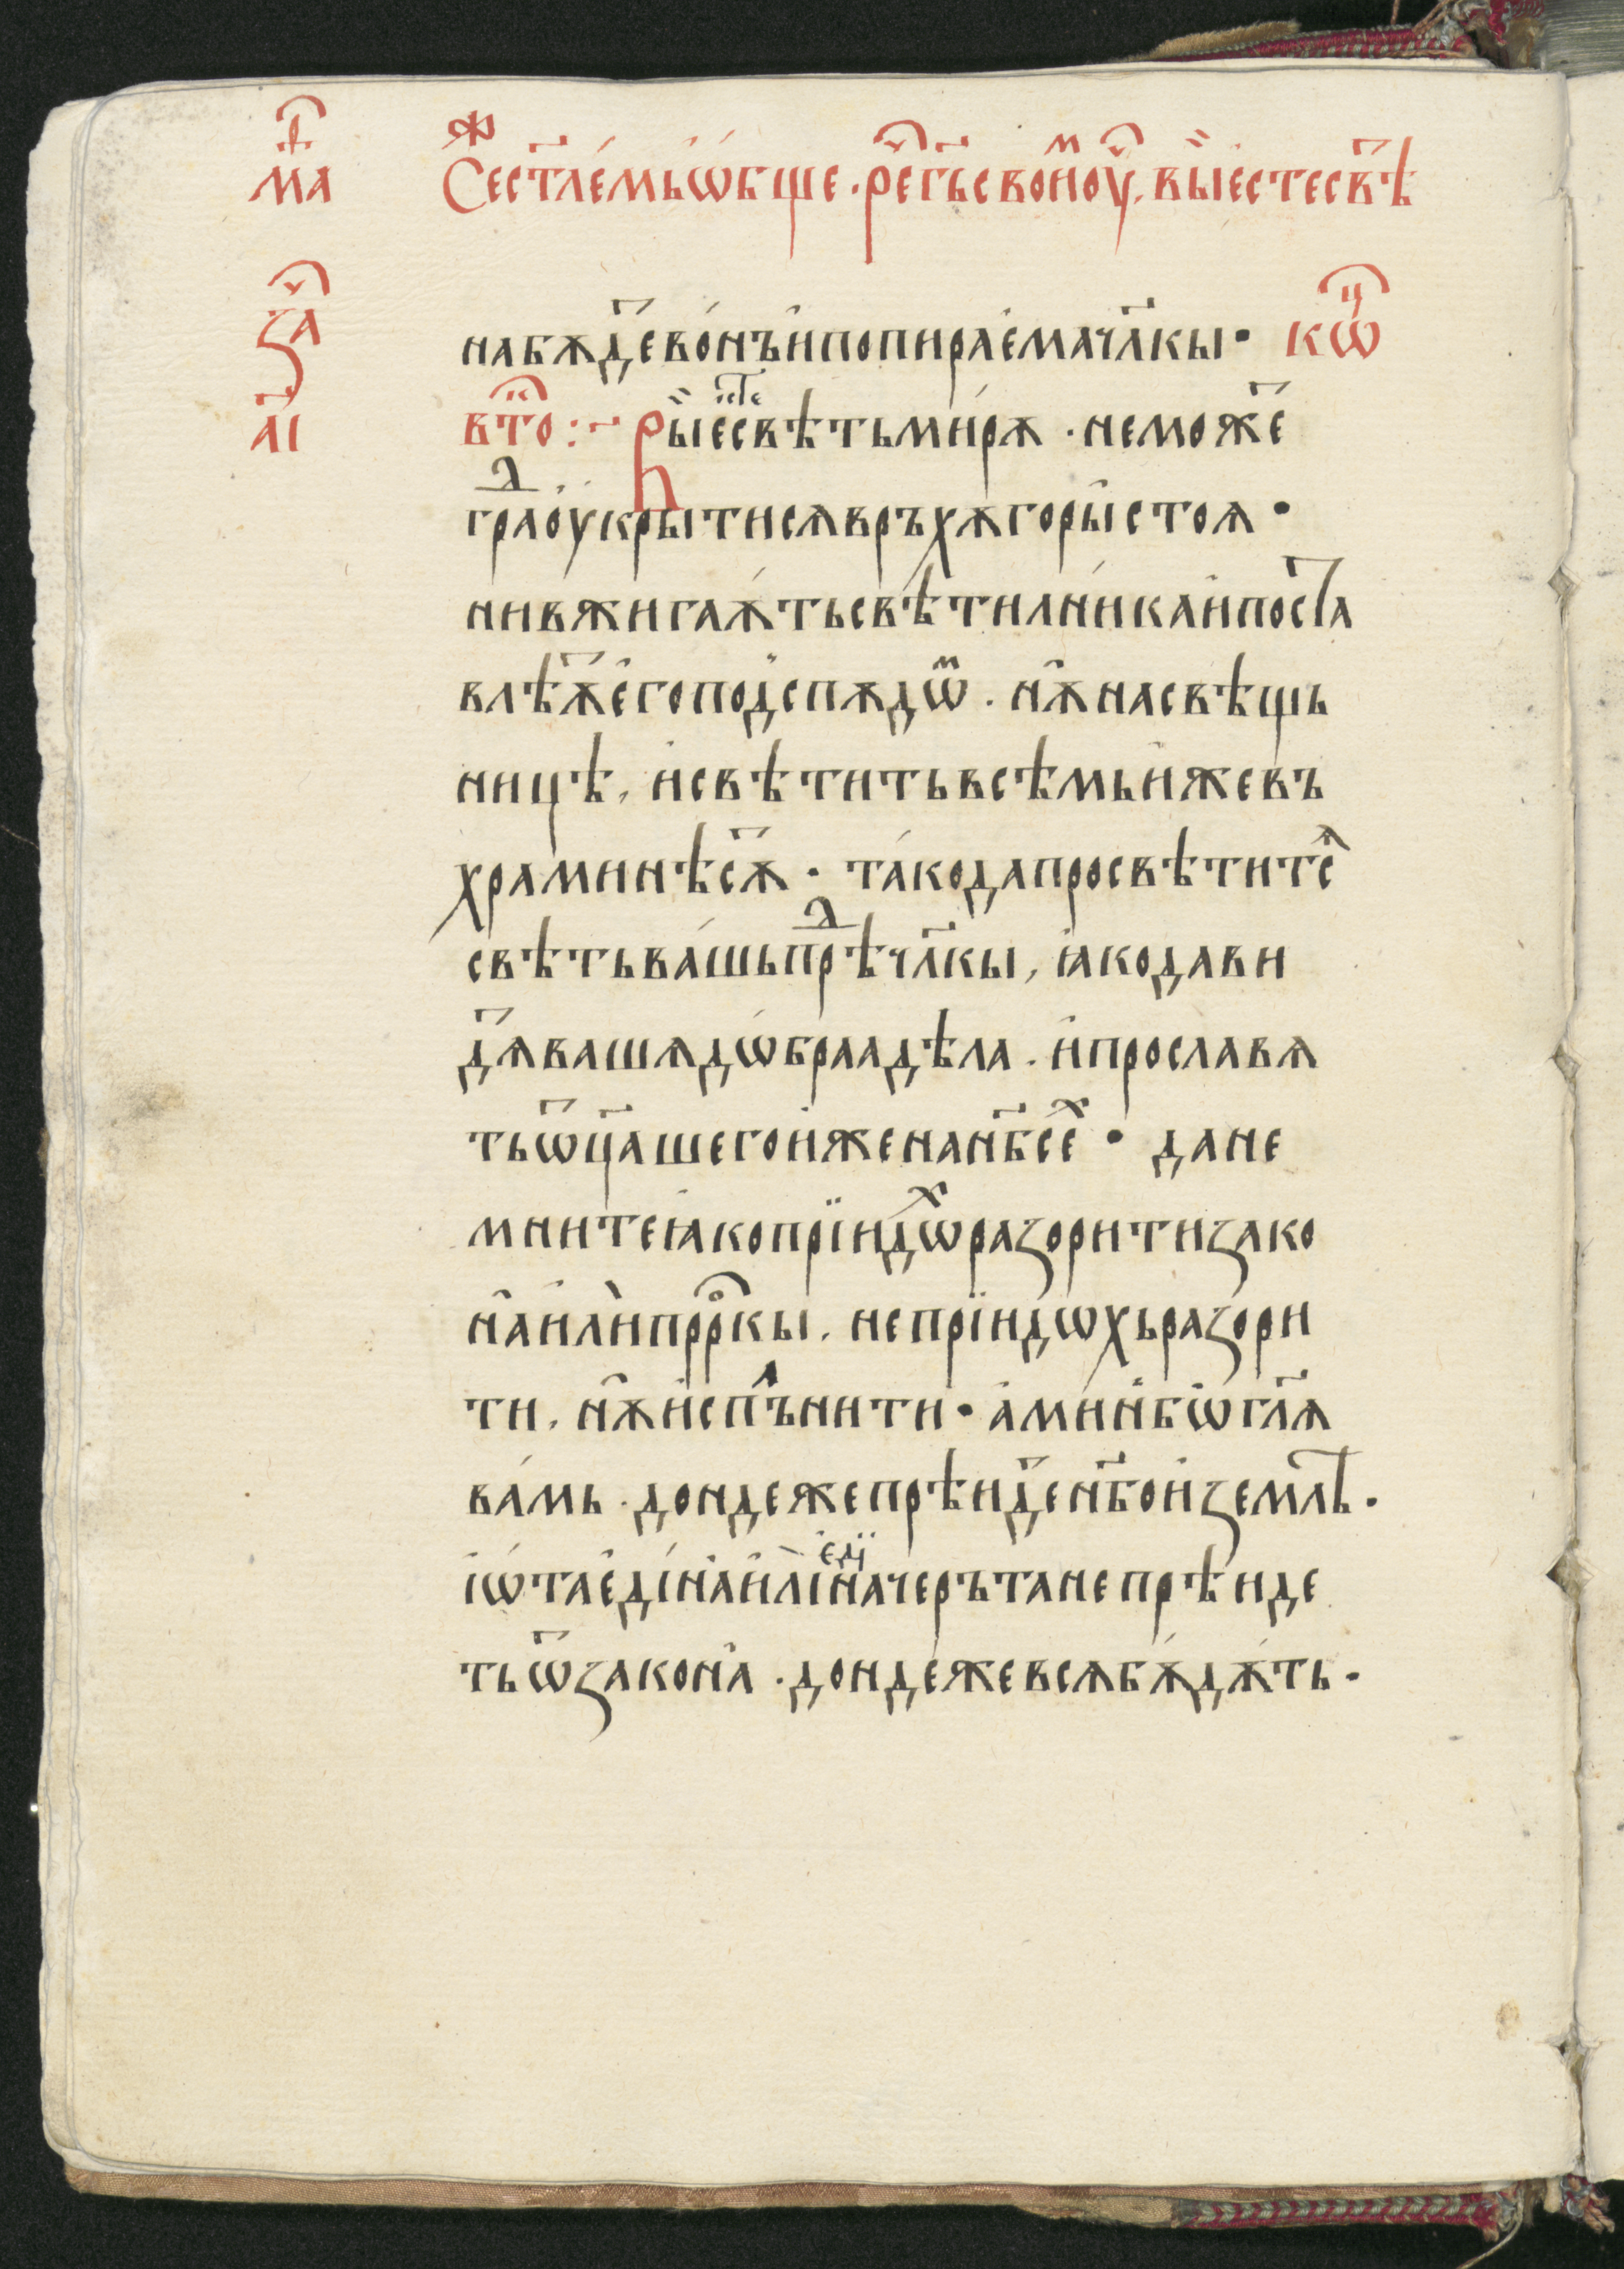 МАⷴ҇
С҃ест҃ле́мьѡ҆бще · ре҇г҃ьсвоиⷨоу҇, вы̏естесвⷮѣ
НАБѪДⷮЕВО́НЪИ҆ПОПИРАЕ҆МАЧЛ҃КЫ · КѠⷰ
ЗАⷱ҇
А҃І
втⷪ҇ :~ Вы̏естесвѣтьми́рꙋ · неможеⷮ
граⷣоу҆крытисѧврьхꙋгоры̀стоѧ ·
нивжигаѫ́тьсвѣтилни́каи҆поста
влѣѫⷮе҆гоподспѫдѡⷨ · нѫ̑насвѣщь
ницѣ, и҆свѣтитьвсѣмьи҆жевъ
храминѣсѫⷮ · та́кодапросвѣтитсѧ
свѣтьва́шьпрѣⷣчл҃кы, ꙗ҆кодави
дѧⷮвашѧдѡ́браадѣла · и҆прославѧ
тьѿц҃ашегои҆женан҃бсеⷯ · дане
мнитеꙗ҆копрїидѡⷯразоритизако
на̑и҆лѝпрⷪ҇ркы, непрїидѡхьразори
ти, нѫ̑и҆сплънити · а҆ми́нбѡ̀гл҃ѧ
ва́мь · дондежепрѣидеⷮн҃бои҆землѣ ·
і҆ѡ́тае҆ди́на̑и҆лѝе҆ди́начерътанепрѣиде
тьѿзакона̑ · дондежевсѧбѫ́дѫть ·